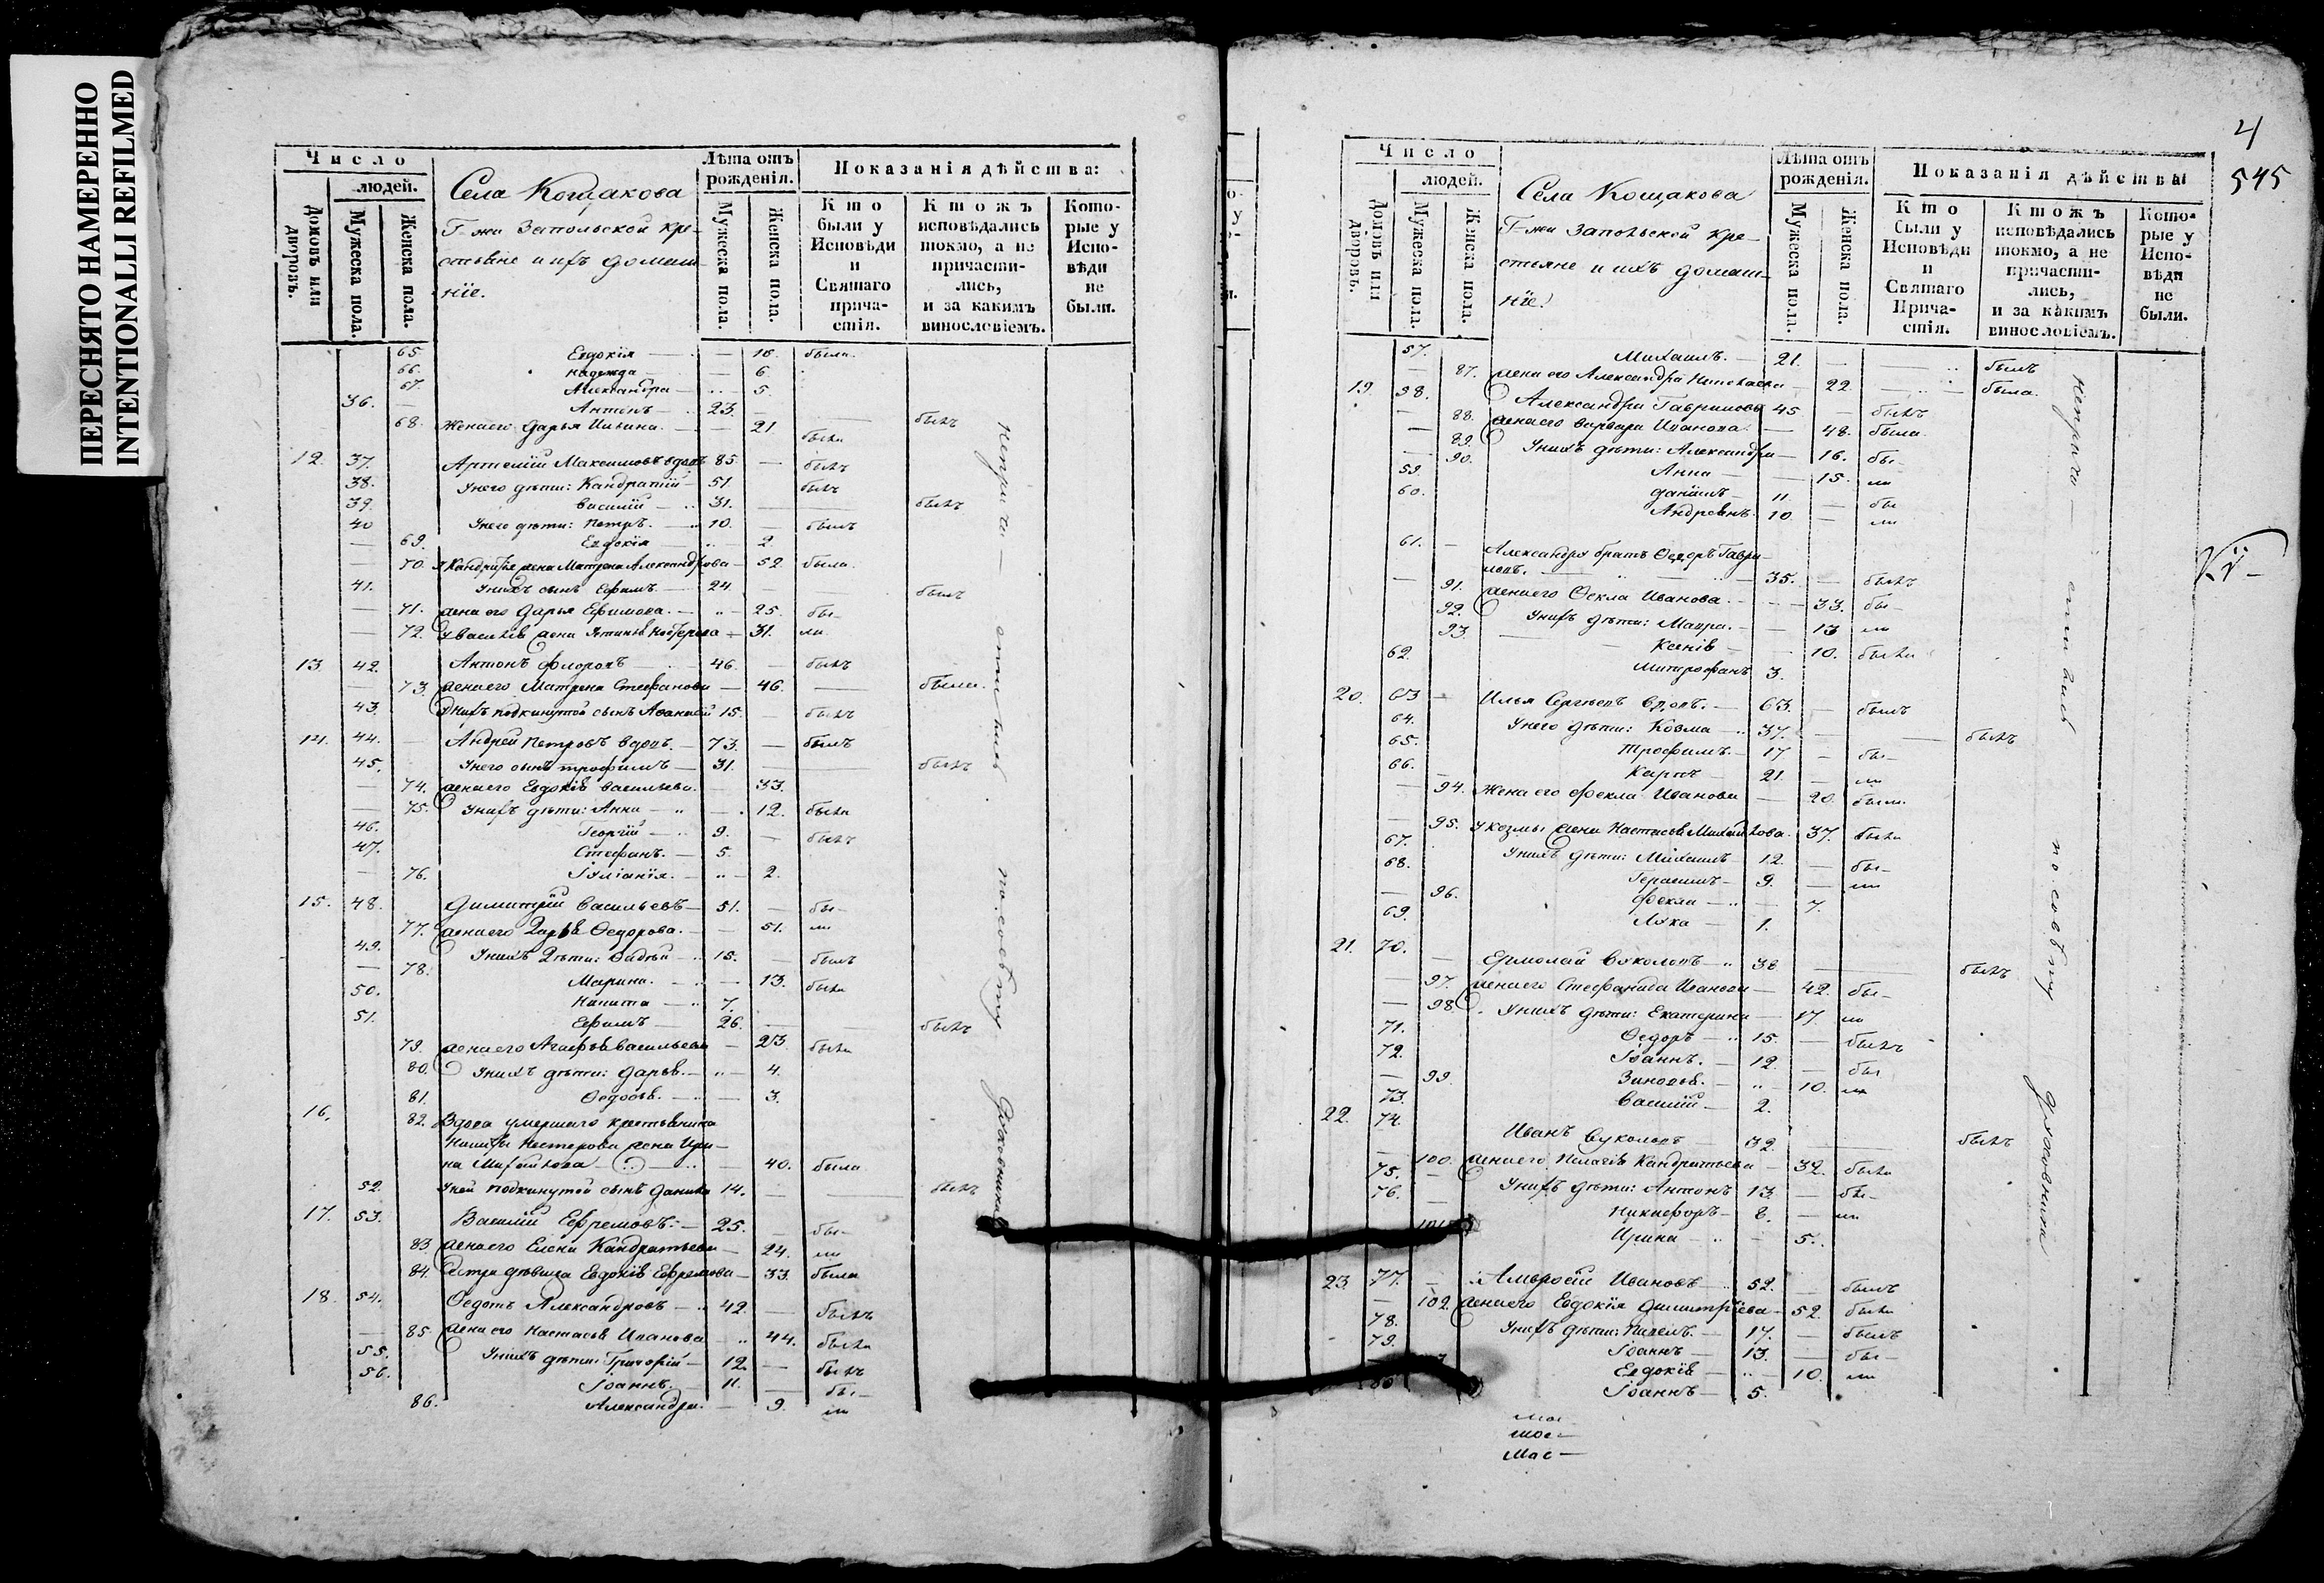 ПЕРЕСНЯТО НАМЕРЕННО
INTENTIONALLI REFILMED
Число
людей.
Домовъ или дворовъ.
Мужеска пола.
Женска пола.
Села Кощакова
Г-жи Запольской кре-
стьяне и ихъ домаш-
нїе.
Лѣта отъ рожденія.
Мужеска пола.
Женска пола.
Показанія дѣйства:
Кто были у Исповѣди и Святаго прича-стія.
Ктожъ исповѣдались токмо, а не причасти-лись, и за какимъ винословіемъ.
Кото-рые у Испо-вѣди не были.
65. Евдокїя — была
66. Надежда — 6
67. Александра — 5.
36. Антонъ — 23. былъ
68. Жена его Дарья — 21. была
12. 37. Артемїй Максимовъ вдовъ 85. — былъ
38. У него дѣти: Кандратїй — 51. былъ
39. Василїй — 31. былъ
40 У него дѣти: Петръ. — 10. — былъ
69. Евдокїя — 2.
70. У Кандратья жена Матрена Александрова — 52 была.
41. У нихъ сынъ Ефимъ. — 24. былъ
71. Жена его Дарья Ефимова. — 25. бы-
72. У Василья жена — 31. ли
13 42. Антонъ Флоровъ — 46. — былъ
73. Жена его Матрена Стефанова — 46. — была.
43. У нихъ подкинутой сынъ 15. — былъ
14. 44. Андрей Петровъ вдовъ. — 73. — былъ
45. У него сынъ Трофимъ — 31. былъ
74. Жена его Евдокїя Васильева. — 33.
75. У нихъ дѣти: Анна — 12. была
46. Георгїй — 9. — былъ
47. Стефанъ. — 5.
76. Іулїанїя. — 2.
15. 48. Димитрїй Васильевъ — 51. — бы-
77. Жена его Ѳедорова. — 51. ли
49. У нихъ дѣти: Фадѣй — 15. — былъ
78. Марина. — 13. была
50. Никита — 7.
51. Ефимъ — 26. былъ
79. Жена его Агафья Васильева — 23 была
80. У нихъ дѣти: Дарья. — 4.
81. Ѳедосья. — 3.
16. 82. Вдова умершаго крестьянина
Никиты Нестерова жена Ири-
на Михайлова — 40. была
52. У ней подкинутой сынъ Данила 14. — былъ
17. 53. Василїй Ефремовъ: — 25. бы-
83 Жена его Елена Кандратьева — 24. ли
84. Сестра дѣвица Евдокїя Ефремова — 33. была
18. 54. Ѳедотъ Александровъ — 42. — былъ
85. Жена его Настасья Иванова — 44. была
55. У нихъ дѣти: Григорїй — 12. — былъ
56. Іоаннъ. — 11. — бы-
86. Александра. — 9. ли
по совѣту духовника
4
545
Число
людей.
Домовъ или дворовъ.
Мужеска пола.
Женска пола.
Села Кощакова
Г-жи Запольской кре-
стьяне и ихъ домаш-
нїе.
Лѣта отъ рожденія.
Мужеска пола.
Женска пола.
Показанія дѣйства
Кто были у Исповѣди и Святаго Прича-стія.
Ктожъ исповѣдались токмо, а не причасти-лись, и за какимъ винословіемъ.
Кото-рые у Испо-вѣди не были.
57. Михаилъ. — 21. — былъ
87. Жена его Александра — 22. — была.
19. 58. Александръ Гавриловъ 45 — былъ
88. Жена его Варвара Иванова. — 48. была
89. У нихъ дѣти: Александра — 16. бы-
90. Анна — 15. ли
59. Данїилъ — 11. — бы
60. Андреянъ. 10. — ли
61. — Александра братъ Ѳедоръ Гаври-
ловъ. — 35. — былъ
91. Жена его Ѳекла Иванова. — 33. бы-
92. У нихъ дѣти: Мавра. — 13 ли
93. Ксенія — 10. была
62. Митрофанъ 3.
20. 63 — Илья Сергѣевъ вдовъ. — 63. — былъ
64. У него дѣти: Козма — 37. — былъ
65. Трофимъ. — 17 — бы-
66. Карпъ 21. — ли
94. Жена его Фекла Иванова — 20. была
95. У Козмы жена Настасья Михайлова. 37. была
67. У нихъ дѣти: Михаилъ 12. — бы-
68. Герасимъ — 9. — ли
96. Фекла — 7.
69. Лука — 1.
21. 70. Ермолай Вуколовъ — 38 — былъ
97. Жена его Стефанида Иванова — 42. бы-
98. У нихъ дѣти: Екатерина — 17. ли
71. Ѳедоръ — 15. — былъ
72. Іоаннъ. — 12. — бы
99. Зиновья. — 10. ли
73. Василїй — 2.
22. 74. Иванъ Вуколовъ 32. — былъ
100. Жена его Пелагїя Кандратьева — 32. была
75. У нихъ дѣти: Антонъ 13. — бы-
76. Никифоръ — 8. — ли
Ирина — 5.
23. 77. Амвросїй Ивановъ 52. — былъ
102. Жена его Евдокїя Димитрїева — 52. была
78. У нихъ дѣти: Павелъ. — 17. — былъ
79. Іоаннъ — 13. — бы-
Евдокїя — 10. ли
80 Іоаннъ — 5.
по совѣту духовника